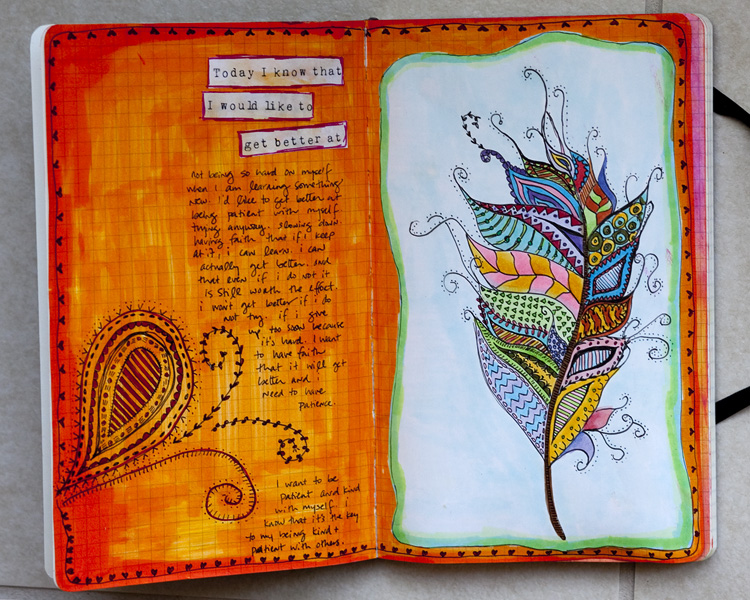 Today I know that
I would like to
get better at
not being so hard on myself
when I am learning something
new. I'd like to get better at
being patient with myself
trying anyway. slowing down.
having faith that if I keep
at it, i can learn. i can
actually get better. and
that even if i do not it
is still worth the effort.
i won't get better if i do
not try. if i give
up too soon because
it's hard. I want
to have faith
that it will get
better and i
need to have
patience.
I want to be
patient and kind
with myself. i
know that it's the key
to my being kind +
patient with others.